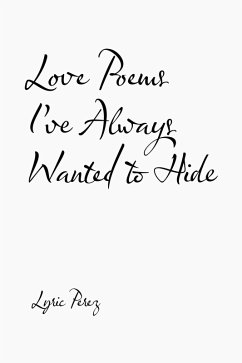 Love Poems
I've Always
Wanted to Hide
Lyric Perez